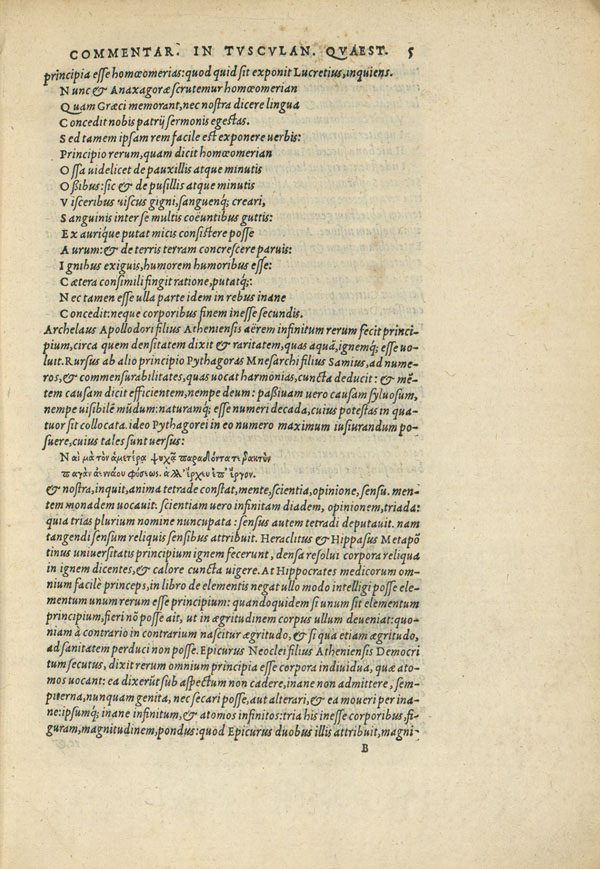 COMMENTAR. IN TVSCVLAN. QVAEST. 5
principia esse homœomerias: quod quid sit exponit Lucretius, inquiens.
Nunc & Anaxagoræ scrutemur homœomerian
Quam Græci memorant, nec nostra dicere lingua
Concedit nobis patrij sermonis egestas.
Sed tamen ipsam rem facile est exponere uerbis:
Principio rerum, quam dicit homœomerian
Ossa uidelicet de pauxillis atque minutis
Oßibus: sic & de pusillis atque minutis
Visceribus uiscus gigni, sanguenq; creari,
Sanguinis inter se multis coëuntibus guttis:
Ex aurique putat micis consistere posse
Aurum: & de terris terram concrescere paruis:
Ignibus exiguis, humorem humoribus esse:
Cætera consimili fingit ratione, putatq;:
Nec tamen esse ulla parte idem in rebus inane
Concedit: neque corporibus finem inesse secundis.
Archelaus Apollodori filius Atheniensis aërem infinitum rerum fecit princi-
pium, circa quem densitatem dixit & raritatem, quas aquã, ignemq; esse uo-
luit. Rursus ab alio principio Pythagoras Mnesarchi filius Samius, ad nume-
ros, & commensurabilitates, quas uocat harmonias, cuncta deducit: & mẽ-
tem causam dicit efficientem, nempe deum: paßiuam uero causam syluosum,
nempe uisibilẽ mũdum: naturamq; esse numeri decada, cuius potestas in qua-
tuor sit collocata. ideo Pythagorei in eo numero maximum iusiurandum po-
suere, cuius tales sunt uersus:
Ναὶ μὰ τὸν ἁμετέρᾳ ψυχᾷ παραδόντα τετρακτὺν
παγὰν ἀεννάου φύσεως. ἀλλ' ἔρχευ ἐπ' ἔργον.
& nostra, inquit, anima tetrade constat, mente, scientia, opinione, sensu. men-
tem monadem uocauit: scientiam uero infinitam diadem, opinionem, triada:
quia trias plurium nomine nuncupata: sensus autem tetradi deputauit. nam
tangendi sensum reliquis sensibus attribuit. Heraclitus & Hippasus Metapõ
tinus uniuersitatis principium ignem fecerunt, densa resolui corpora reliqua
in ignem dicentes, & calore cuncta uigere. At Hippocrates medicorum om-
nium facilè princeps, in libro de elementis negat ullo modo intelligi posse ele-
mentum unum rerum esse principium: quandoquidem si unum sit elementum
principium, fieri nõ posse ait, ut in ægritudinem corpus ullum deueniat: quo-
niam à contrario in contrarium nascitur ægritudo, & si qua etiam ægritudo,
ad sanitatem perduci non posse. Epicurus Neoclei filius Atheniensis Democri
tum secutus, dixit rerum omnium principia esse corpora indiuidua, quæ ato-
mos uocant: ea dixerũt sub aspectum non cadere, inane non admittere, sem-
piterna, nunquam genita, nec secari posse, aut alterari, & ea moueri per ina-
ne: ipsumq; inane infinitum, & atomos infinitos: tria his inesse corporibus, fi-
guram, magnitudinem, pondus: quod Epicurus duobus illis attribuit, magni-
B